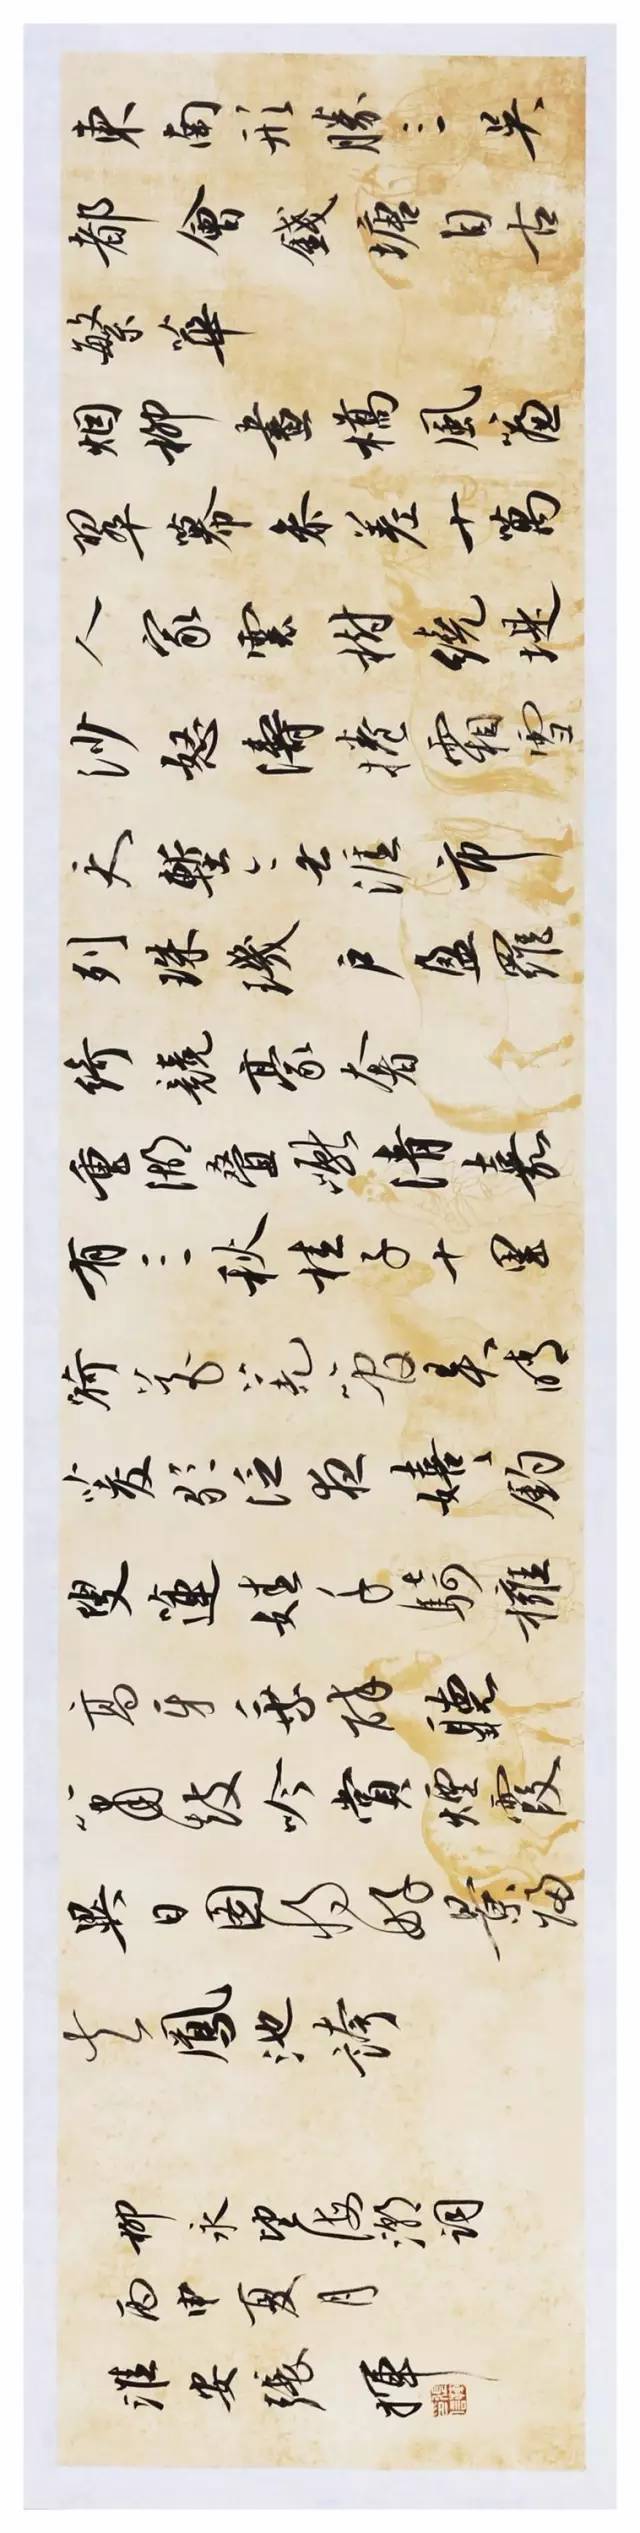 東南形勝三吳
都會錢塘自古
繁華
烟柳畫橋風簾
翠幕參差十萬
人家雲樹繞堤
沙怒濤捲霜雪
天塹無涯市
列珠璣戶盈羅
綺競豪奢
重湖疊巘清嘉
有三秋桂子十里
荷花羌管弄晴
菱歌泛夜嬉釣
叟蓮娃千騎擁
高牙乘醉聽
簫鼓吟賞煙霞
異日圖將好景歸
去鳳池誇
柳永望海潮詞
丙申夏月
淮安張揮